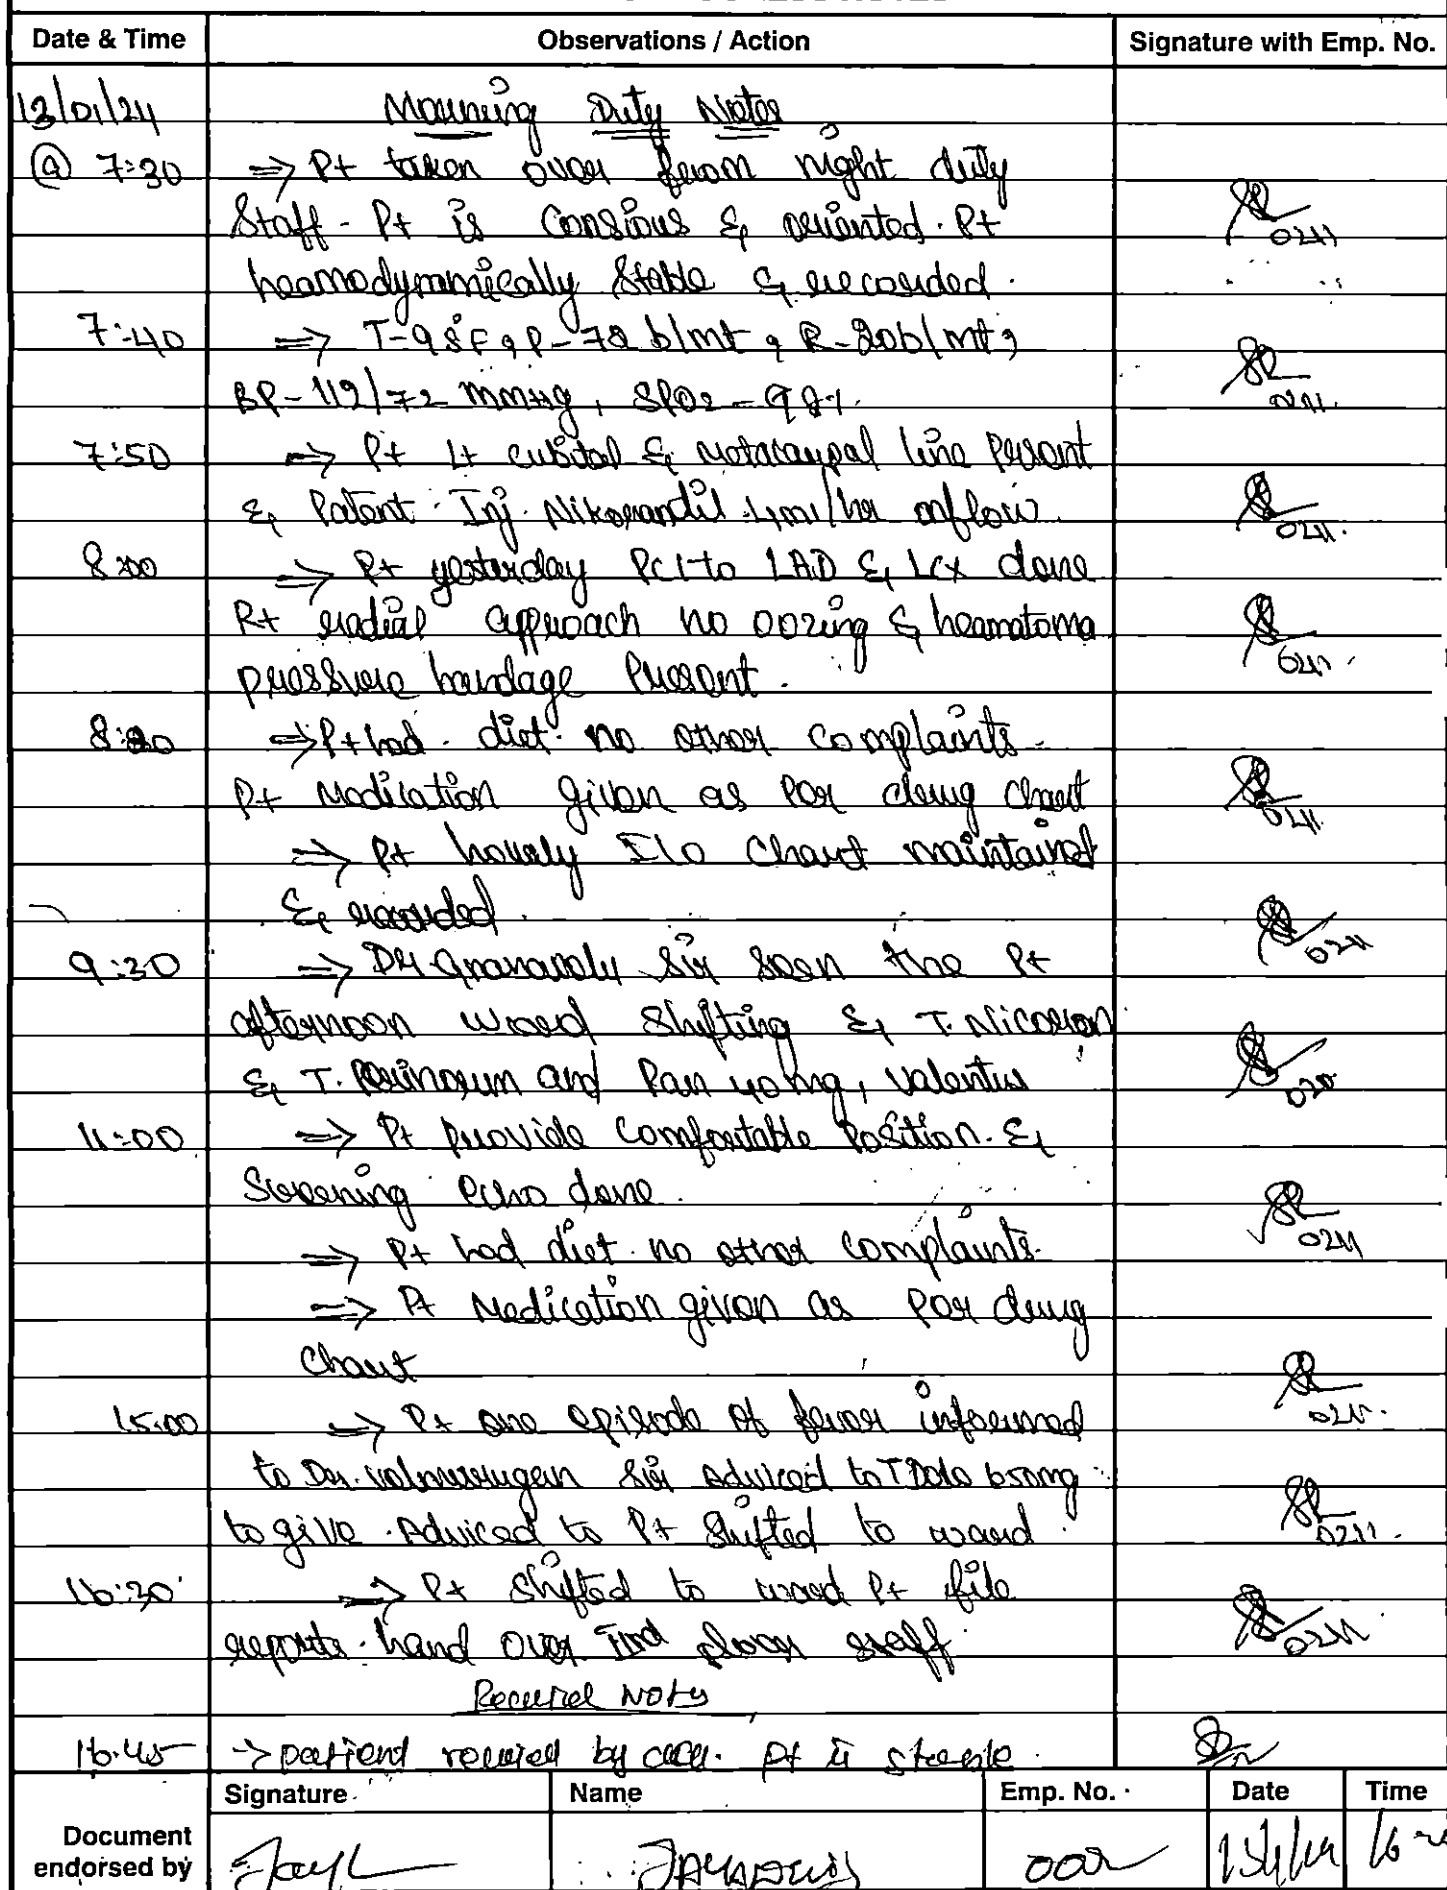 Date & Time Observations / Action Signature with Emp. No.
13/01/24 Mourning Duty Notes
@ 7:30 => Pt taken over from night duty
Staff - Pt is Consious & oriented. Pt 0211
heamodynamically Stable & recorded.
7:40 => T-98°F, P-72 b/mt, R-20b/mt,
BP-112/72 mmHg, SPO2-98%. 0211
7:50 => Pt Lt cubital & metacarpal line Present
& Patent. Inj. Nikorandil 4ml/hr onflow. 0211.
8:00 => Pt yesterday PCI to LAD & LCX done
Rt radial approach no oozing & heamatoma 0211
pressure bandage Present.
=> Pt had diet no other complaints
Pt Medication given as Per drug chart 0211
=> Pt hourly I/O Chart maintained
& recorded. 0211
9:30 => Dr Sir Seen the Pt
afternoon ward Shifting & T.
& T. and Pan 40mg,
11:00 => Pt provide Comfortable Position. &
Screening echo done. 0211
=> Pt had diet no other complaints.
=> Pt Medication given as Per drug
Chart 0211.
15:00 => Pt one episode of fever informed
to Dr. Sir adviced to T Dolo 650mg
to give. Adviced to Pt Shifted to ward. 0211.
16:30 => Pt Shifted to ward Pt file
reports hand over floor staff. 0211
Notes
16:45 -> patient by Pt is
Signature Name Emp. No. Date Time
Document
endorsed by